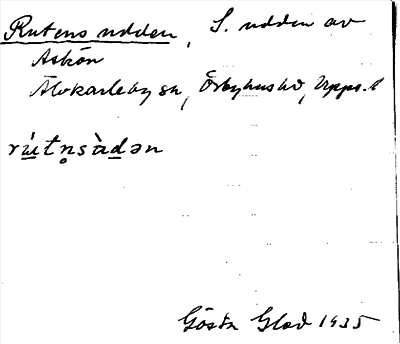 Rutens udden, S. udden av
Askön
Älvkarleby sn, Örbyhus hd, Upps. l
rút̥nsàdən
Gösta Glad 1935